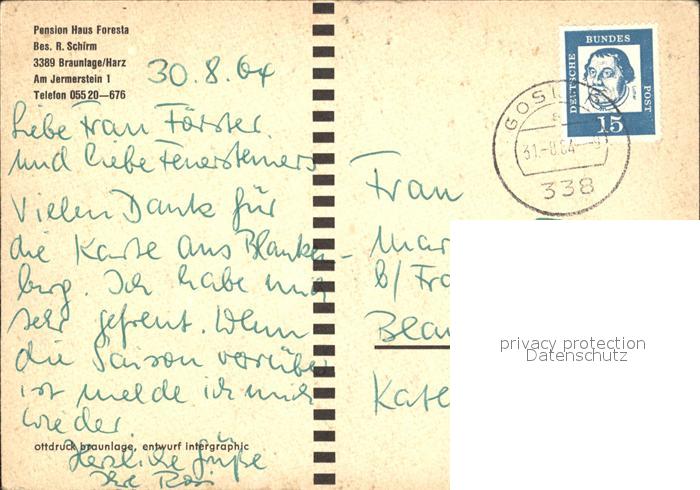 Pension Haus Foresta
Bes. R. Schirm
3389 Braunlage/Harz
Am Jermerstein 1
Telefon 05520—676
30.8.64
Liebe Frau Förster.
und liebe Feuersteiners
Vielen Dank für
die Karte aus Blanken-
burg. Ich habe mich
sehr gefreut. Wenn
die Saison vorüber
ist melde ich mich
wieder.
Herzliche Grüße
Ihre Rosi
ottdruck braunlage, entwurf intergraphic
DEUTSCHE BUNDES POST
15
GOSLAR
31.-8.64
338
Frau
Mar
b/ Fra
Blan
Kate
privacy protection
Datenschutz